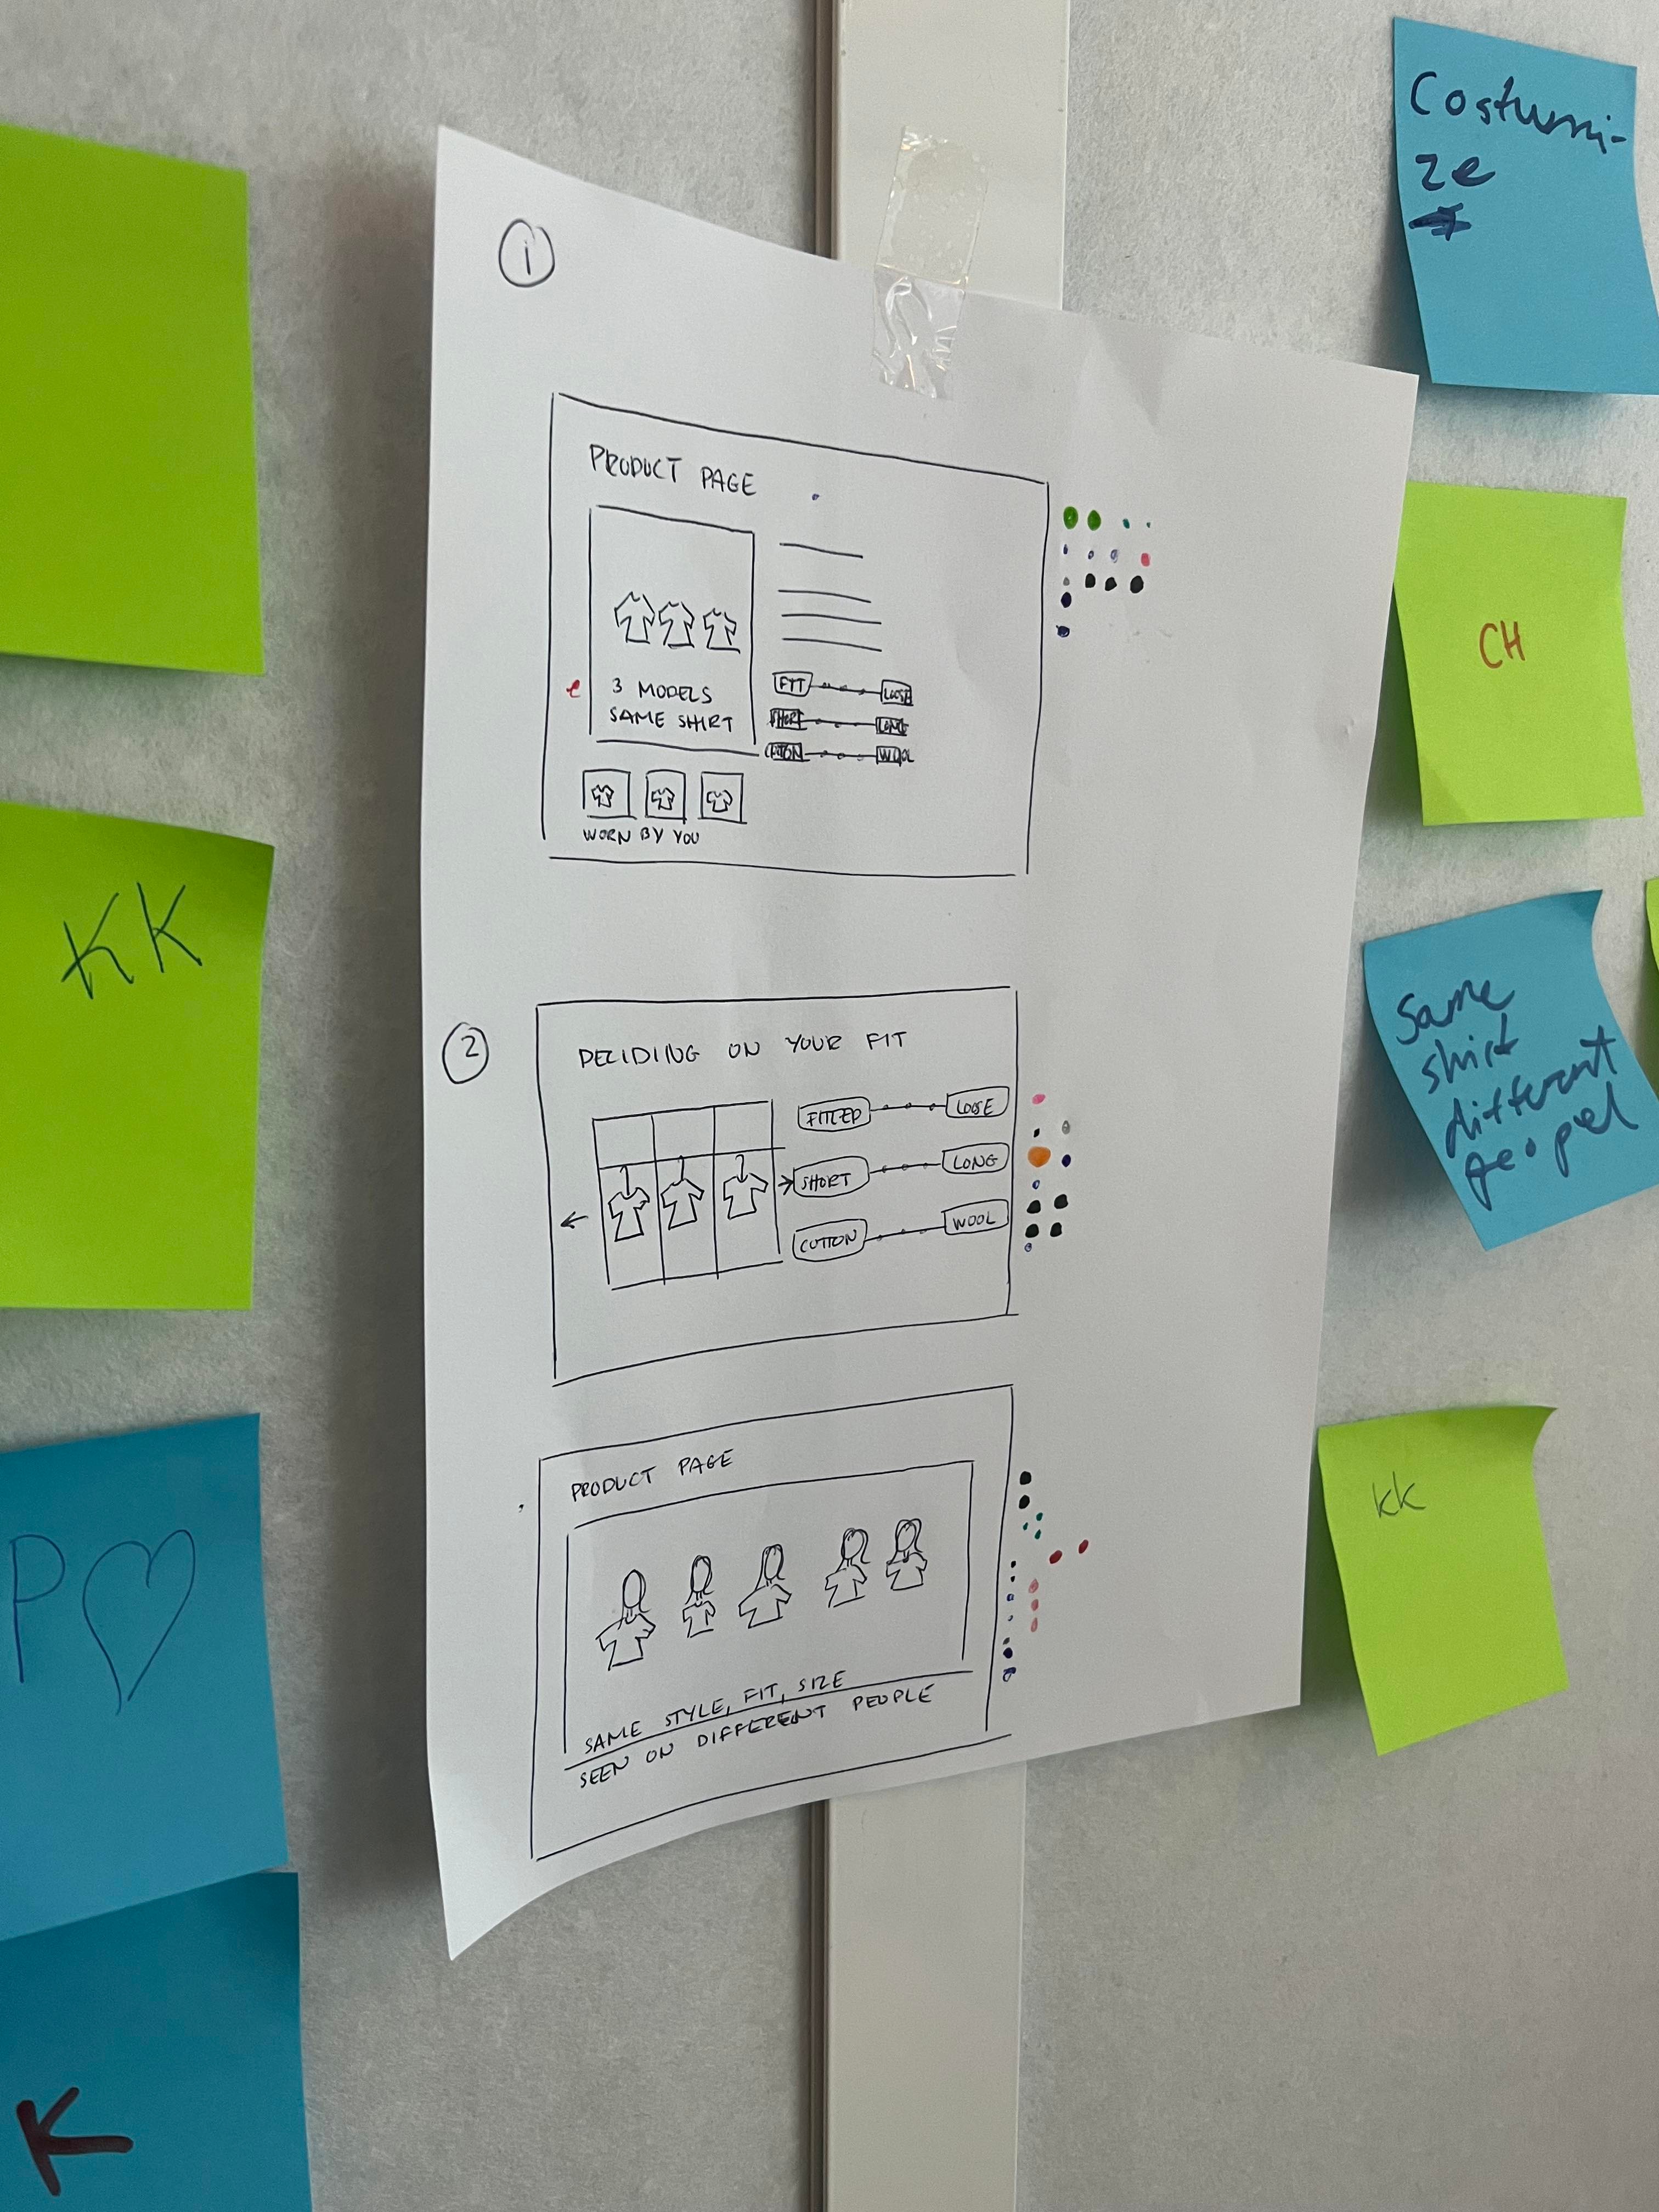 1
PRODUCT PAGE
3 MODELS
SAME SHIRT
FIT
LOOSE
SHORT
LONG
COTTON
WOOL
WORN BY YOU
2
DECIDING ON YOUR FIT
FITTED
LOOSE
SHORT
LONG
COTTON
WOOL
PRODUCT PAGE
SAME STYLE, FIT, SIZE
SEEN ON DIFFERENT PEOPLE
KK
P
K
Costumi-
ze
CH
Same
shirt
different
peopel
KK